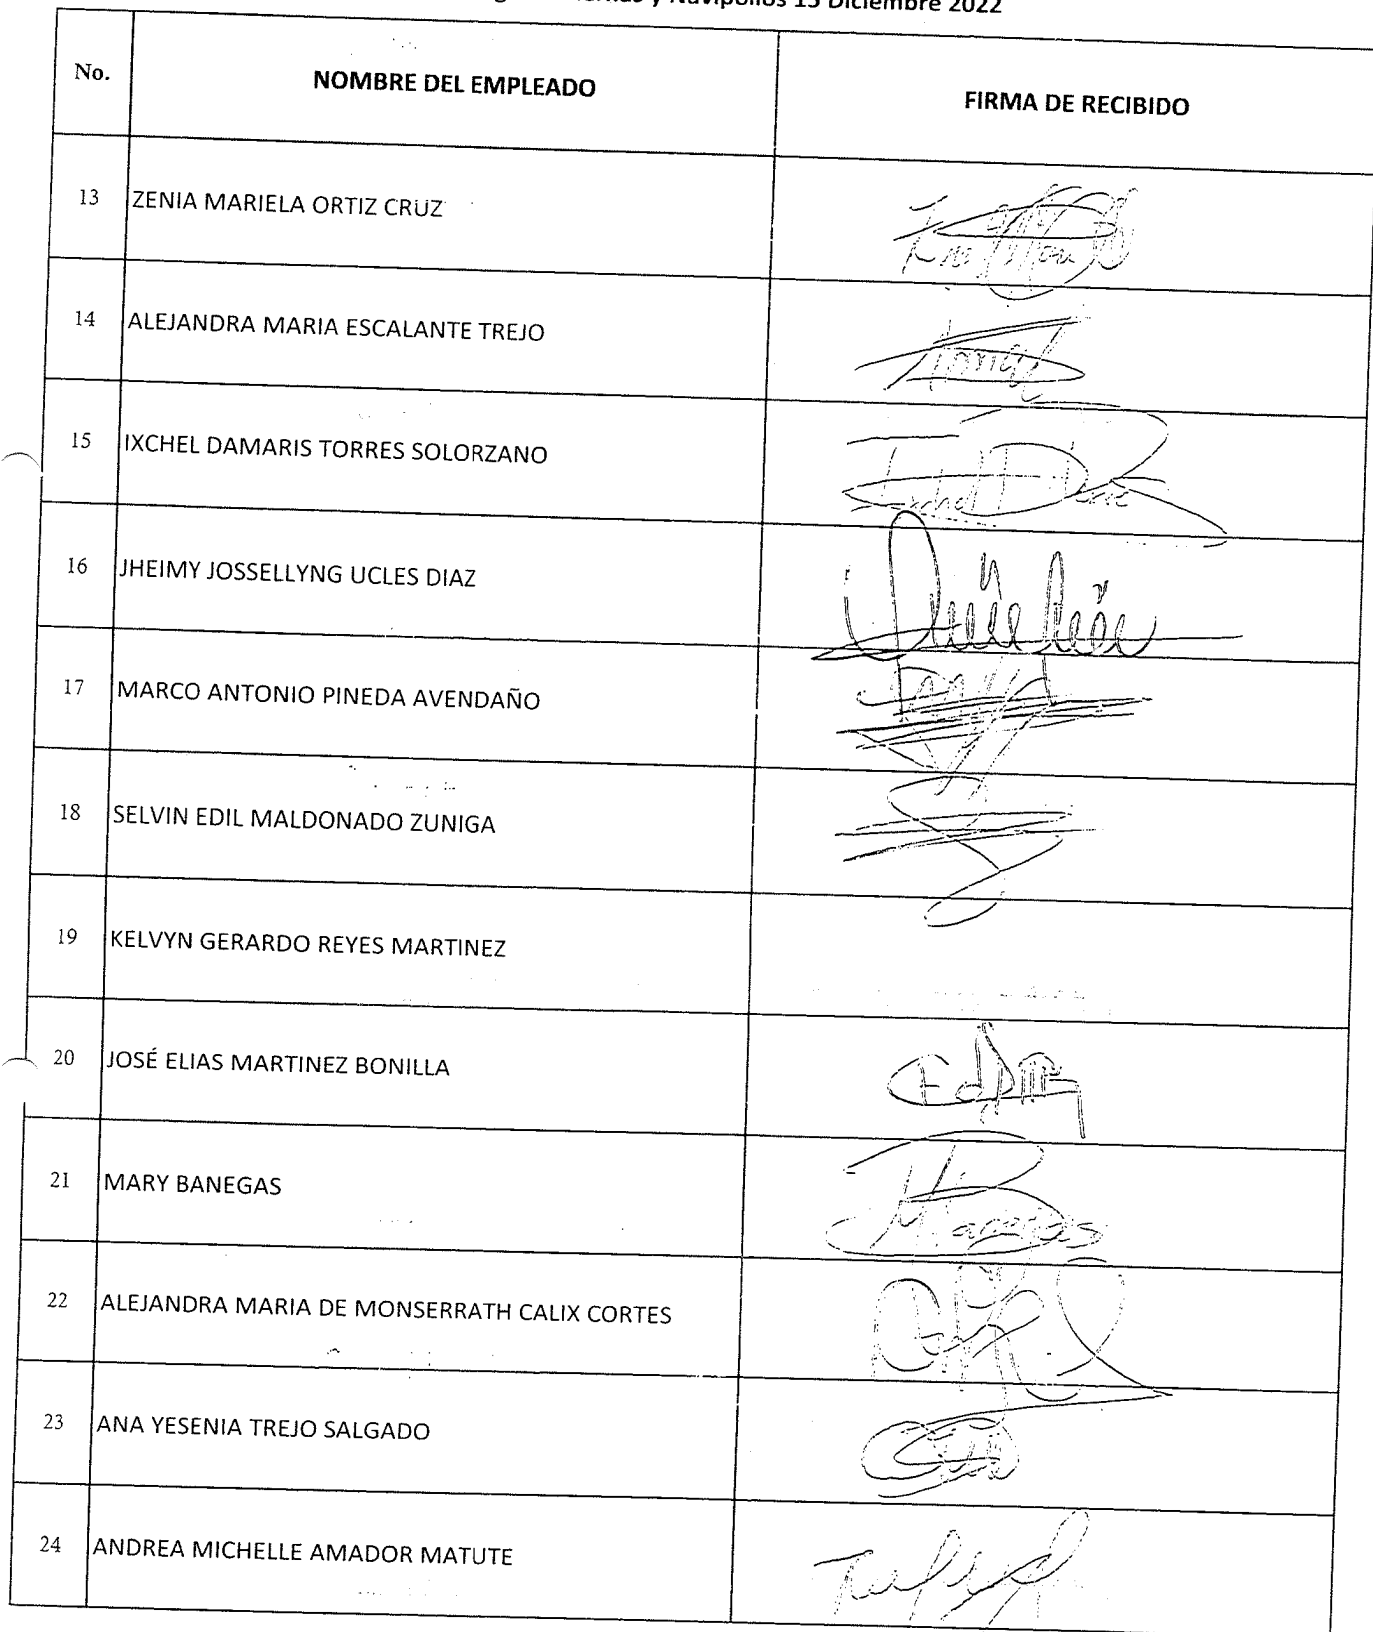 y Navipollos 15 Diciembre 2022
No. NOMBRE DEL EMPLEADO FIRMA DE RECIBIDO
13 ZENIA MARIELA ORTIZ CRUZ
14 ALEJANDRA MARIA ESCALANTE TREJO
15 IXCHEL DAMARIS TORRES SOLORZANO
16 JHEIMY JOSSELLYNG UCLES DIAZ
17 MARCO ANTONIO PINEDA AVENDAÑO
18 SELVIN EDIL MALDONADO ZUNIGA
19 KELVYN GERARDO REYES MARTINEZ
20 JOSÉ ELIAS MARTINEZ BONILLA
21 MARY BANEGAS
22 ALEJANDRA MARIA DE MONSERRATH CALIX CORTES
23 ANA YESENIA TREJO SALGADO
24 ANDREA MICHELLE AMADOR MATUTE